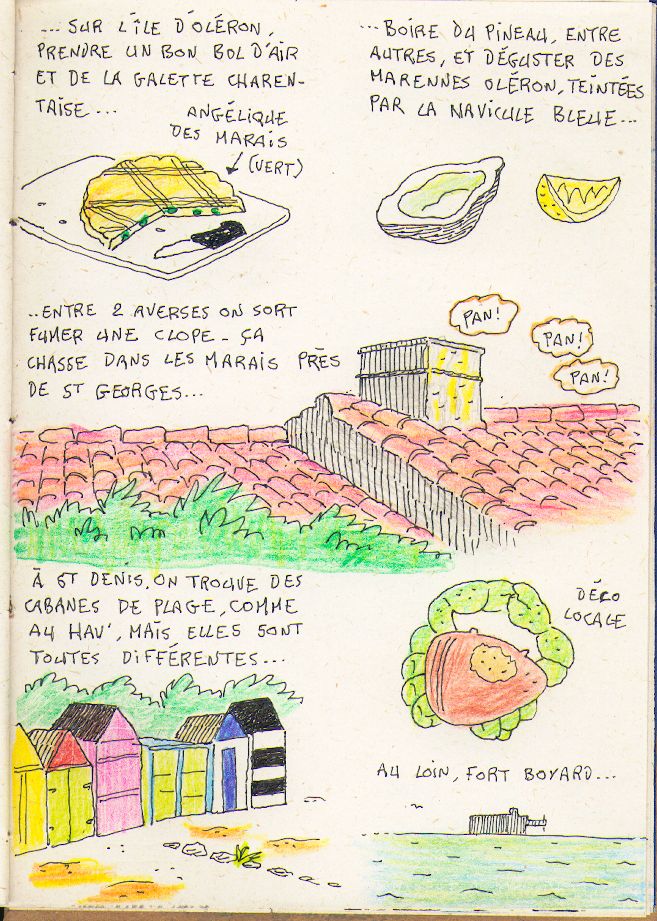 ... SUR L'ÎLE D'OLÉRON,
PRENDRE UN BON BOL D'AIR
ET DE LA GALETTE CHAREN-
TAISE...
ANGÉLIQUE
DES MARAIS
(VERT)
...BOIRE DU PINEAU, ENTRE
AUTRES, ET DÉGUSTER DES
MARENNES OLÉRON, TEINTÉES
PAR LA NAVICULE BLEUE...
..ENTRE 2 AVERSES ON SORT
FUMER UNE CLOPE - ÇA
CHASSE DANS LES MARAIS PRÈS
DE ST GEORGES...
PAN!
PAN!
PAN!
À ST DENIS, ON TROUVE DES
CABANES DE PLAGE, COMME
AU HAV', MAIS ELLES SONT
TOUTES DIFFÉRENTES...
DÉCO
LOCALE
AU LOIN, FORT BOYARD...